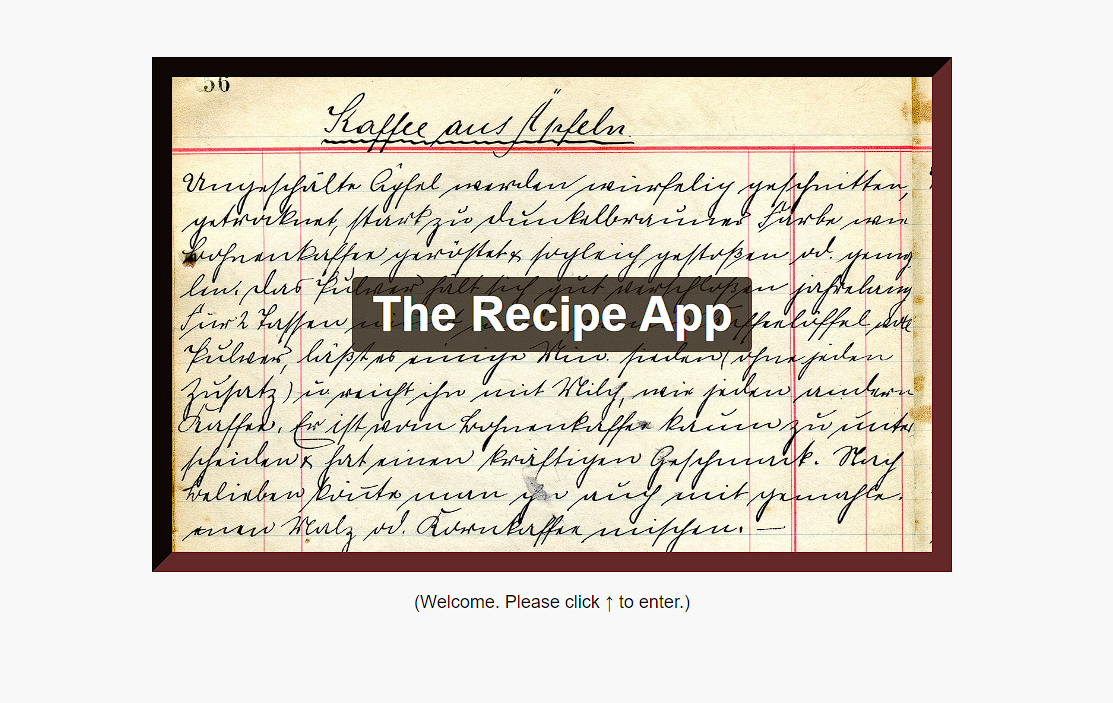 56
Kaffee aus Äpfeln.
Ungeschälte Äpfel werden würfelig geschnitten,
getrocknet, stark zu dunkelbrauner Farbe wie
Bohnenkaffee geröstet & sogleich gestoßen od. gemah
len. Das Pulver hält sich gut verschloßen jahrelang
Für 2 Tassen Kaffeelöffel
The Recipe App
Pulver, läßt es einige Min. sieden (ohne jeden
Zusatz) u reicht ihn mit Milch, wie jeden andern
Kaffee. Er ist vom Bohnenkaffee kaum zu unter
scheiden & hat einen kräftigen Geschmack. Nach
Belieben könnte man ihn auch mit gemahle-
nen Malz od. Kornkaffee mischen. —
(Welcome. Please click ↑ to enter.)